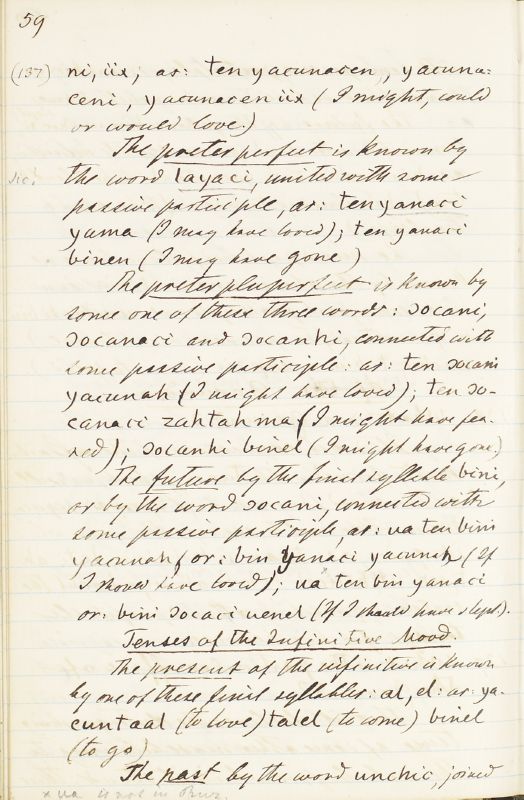 59
(137) ni, iix; as: ten yacunacen, yacuna=
ceni, yacunacen iix (I might, could
or would love.)
The preter perfect is known by
sic! the word layaci, united with some
passive participle, as: ten yanaci
yama (I may have loved); ten yanaci
binen (I may have gone)
The preter pluperfect is known by
some one of these three words: ɔocani,
ɔocanaci and ɔocanhi, connected with
some passive participle: as: ten ɔocani
yacunah (I might have loved); ten ɔo-
canaci zahtahma (I might have fea-
red); ɔocanhi binel (I might have gone)
The future by the final syllable bini,
or by the word ɔocani, connected with
some passive participle, as: ua ten bini
yacunah, or: bin yanaci yacunah (If
I should have loved); ua x ten bin yanaci
or: bini ɔocaci uenel (If I should have slept).
Tenses of the Infinitive Mood.
The present of the infinitive is known
by one of these final syllables: al, el: as: ya-
cuntaal (to love) talel (to come) binel
(to go)
The past by the word unchic, joined
x ua is not in Ruz.